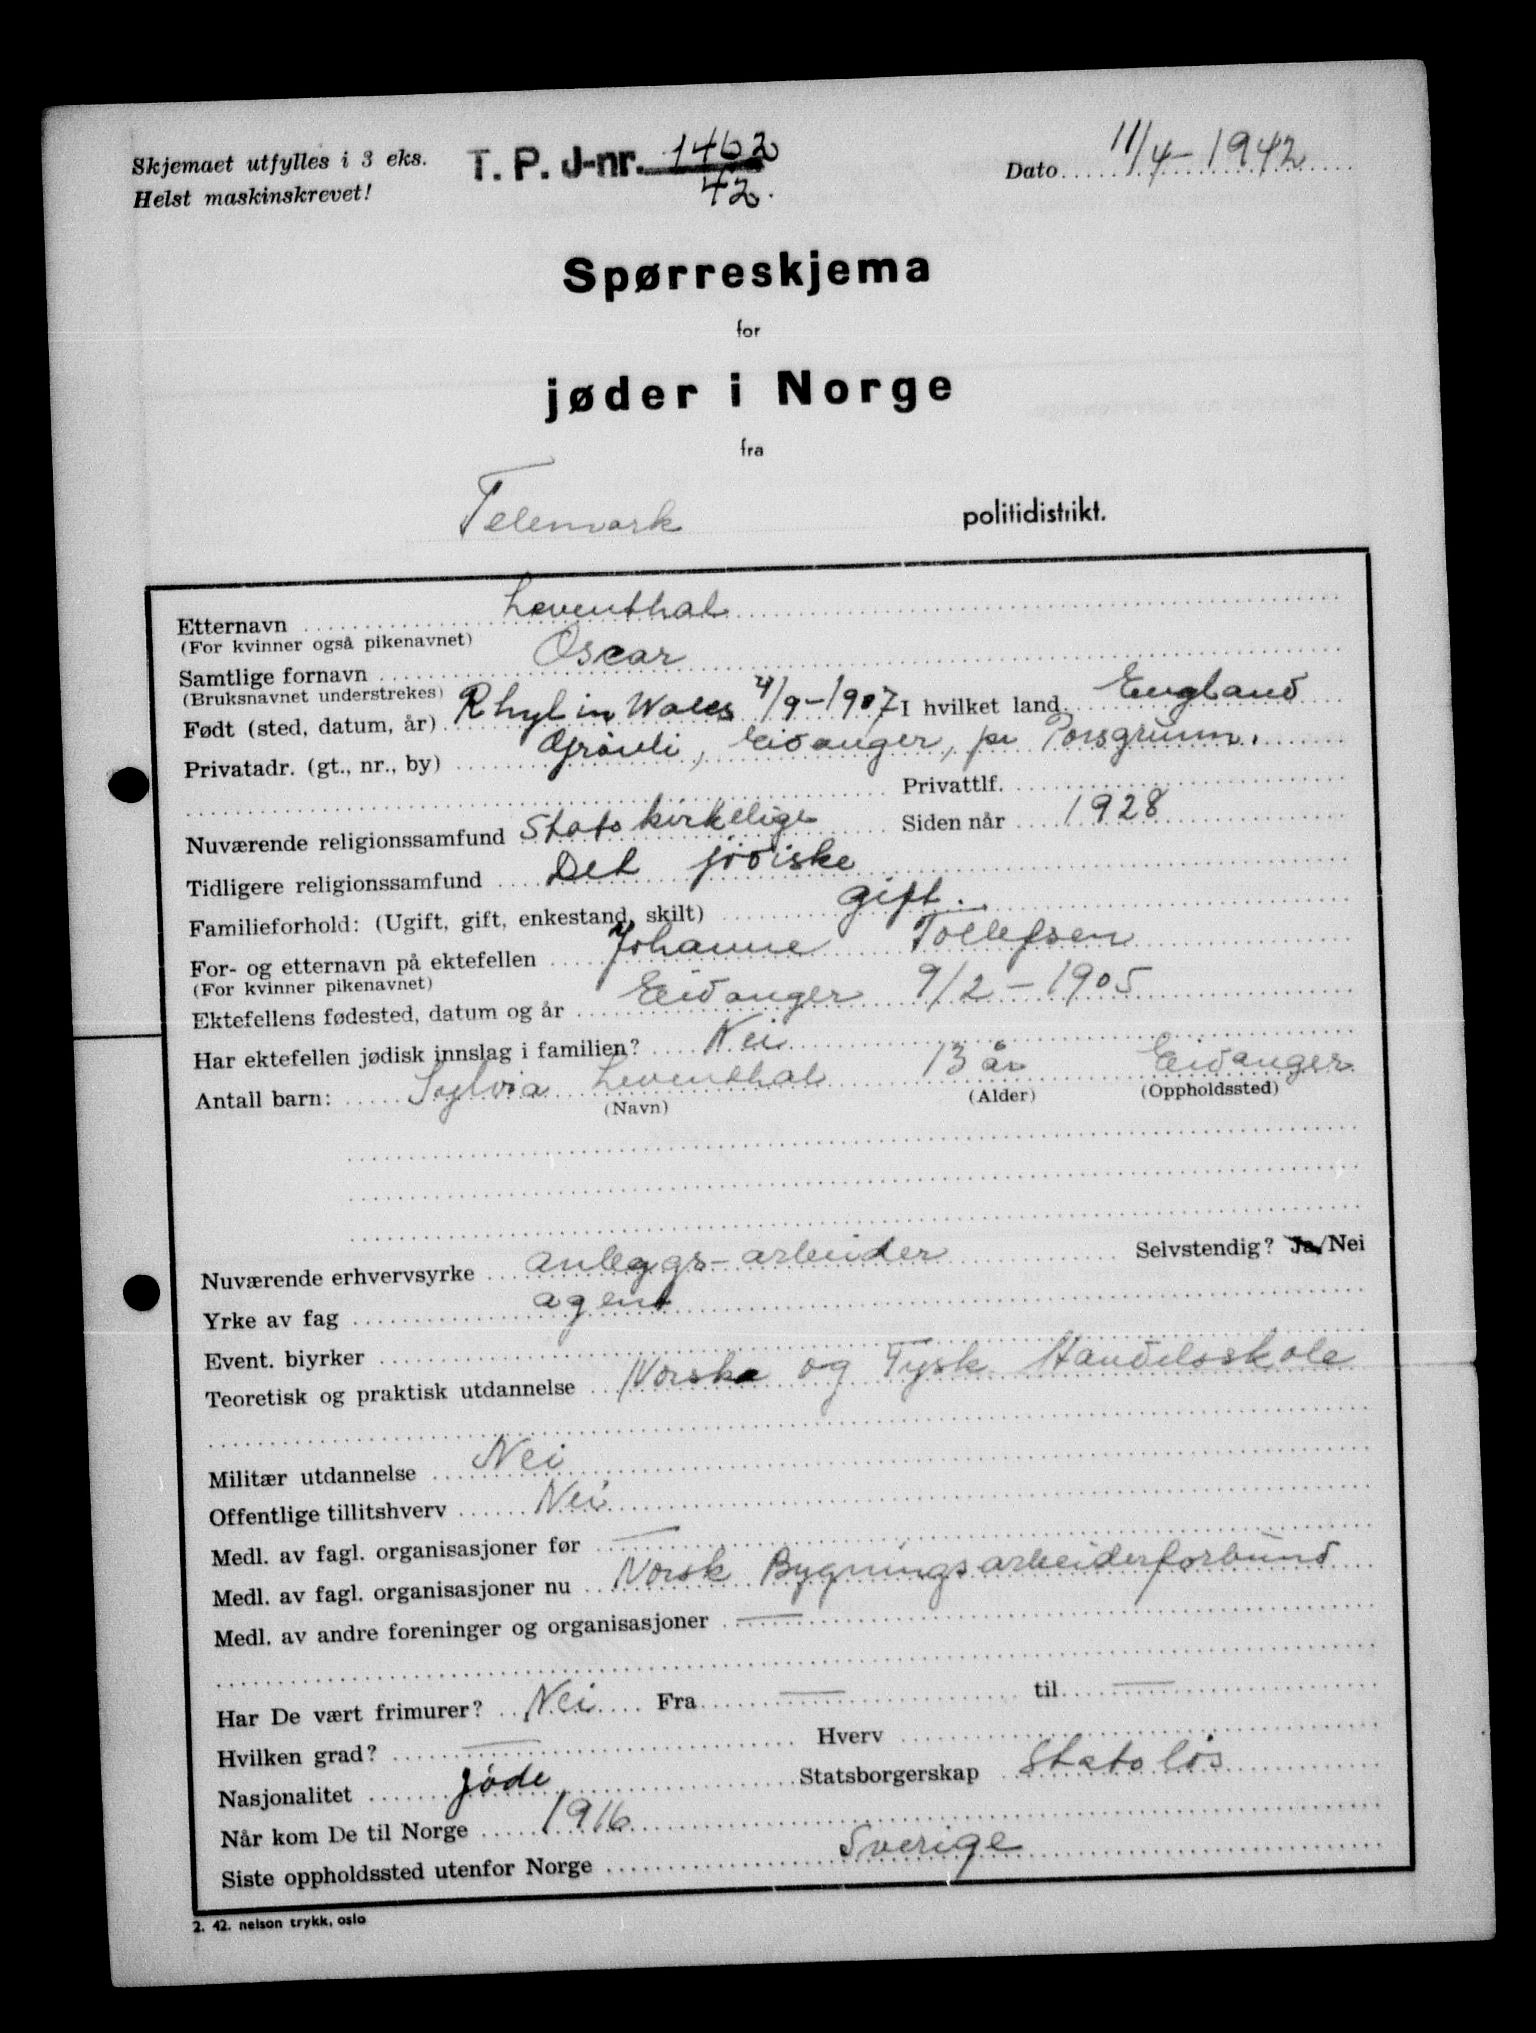 Skjemaet utfylles i 3 eks.
Helst maskinskrevet!
T. P. J-nr. 1462
42.
Dato 11/4-1942
Spørreskjema
for
jøder i Norge
fra
Telemark politidistrikt.
Etternavn Leventhal
(For kvinner også pikenavnet)
Samtlige fornavn Oscar
(Bruksnavnet understrekes)
Født (sted, datum, år) Rhyl in Wales 4/9-1907 I hvilket land England
Privatadr. (gt., nr., by) Grönli, Eidanger, pr Porsgrunn.
Privattlf.
Nuværende religionssamfund Statskirkelige Siden når 1928
Tidligere religionssamfund Det jödiske
Familieforhold: (Ugift, gift, enkestand, skilt) gift.
For- og etternavn på ektefellen Johanne Tollefsen
(For kvinner pikenavnet)
Ektefellens fødested, datum og år Eidanger 9/2-1905
Har ektefellen jødisk innslag i familien? Nei
Antall barn: Sylvia Leventhal 13 år Eidanger
(Navn) (Alder) (Oppholdssted)
Nuværende erhvervsyrke anleggs-arbeider Selvstendig? Ja/Nei
Yrke av fag agent
Event. biyrker
Teoretisk og praktisk utdannelse Norske og Tysk Handelsskole
Militær utdannelse Nei
Offentlige tillitshverv Nei
Medl. av fagl. organisasjoner før —
Medl. av fagl. organisasjoner nu Norsk Bygningsarbeiderforbund
Medl. av andre foreninger og organisasjoner —
Har De vært frimurer? Nei Fra — til —
Hvilken grad? — Hverv
Nasjonalitet Jøde Statsborgerskap Statslös
Når kom De til Norge 1916
Siste oppholdssted utenfor Norge Sverige
2. 42. nelson trykk, oslo